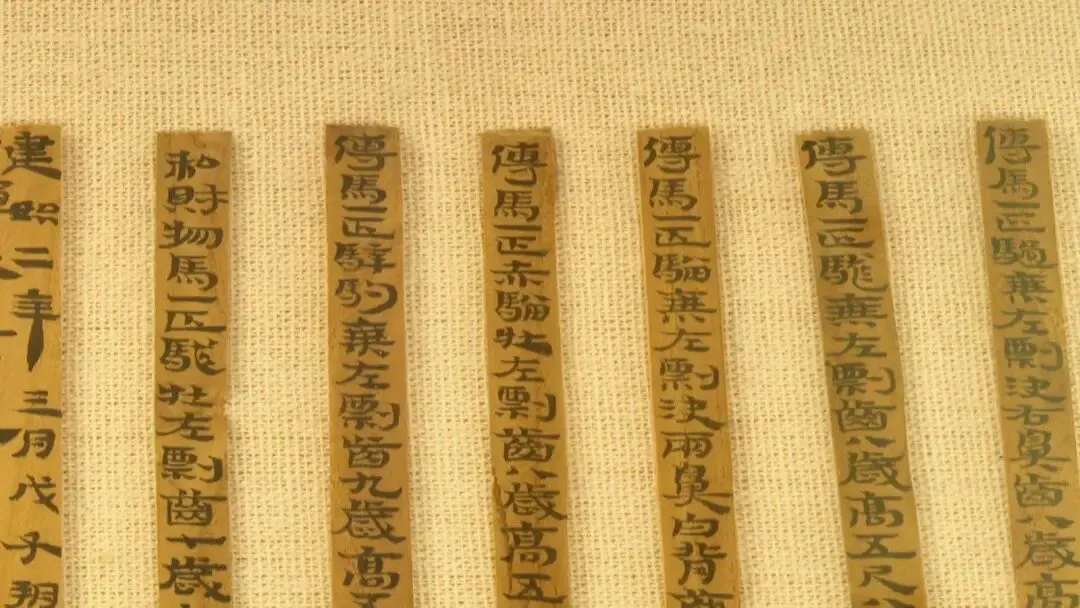 傳馬一匹騧乘左剽決右鼻齒八歲高
傳馬一匹騩乘左剽齒八歲高五尺八
傳馬一匹騮乘左剽決兩鼻白背齒
傳馬一匹赤騮牡左剽齒八歲高五
傳馬一匹驛駒乘左剽齒九歲高五
私財物馬一匹騩牡左剽齒十歲
建始二年三月戊子朔